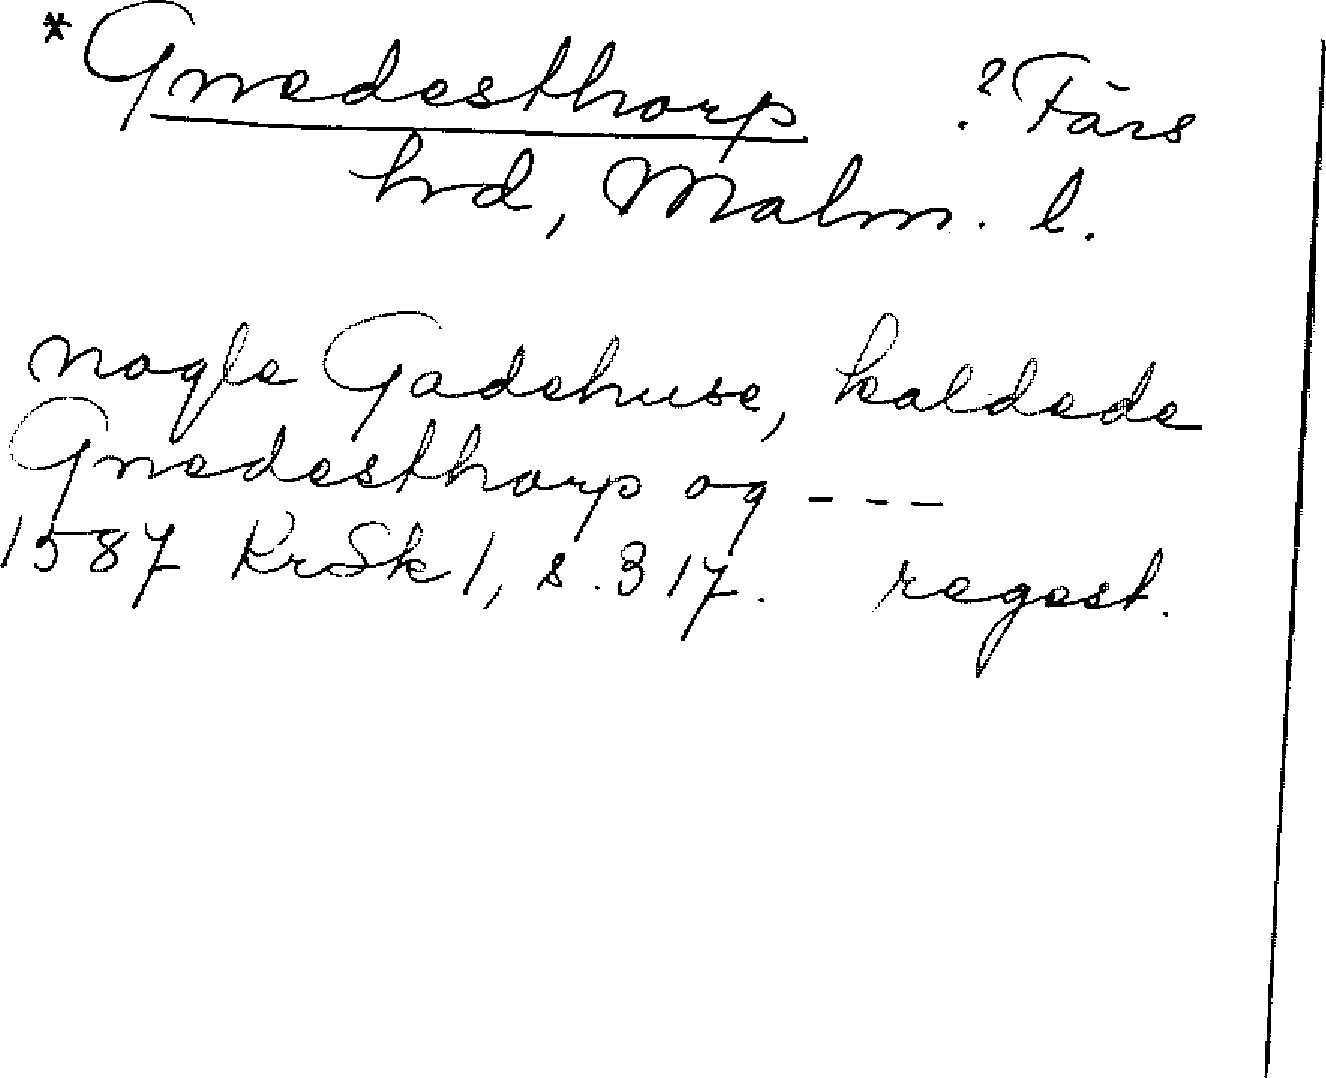 *Gnedesthorp ? Färs
hrd, Malm. l.
nogle Gadehuse, kaldede
Gnedesthorp og ---
1587 KrSk 1, s. 317. regest.